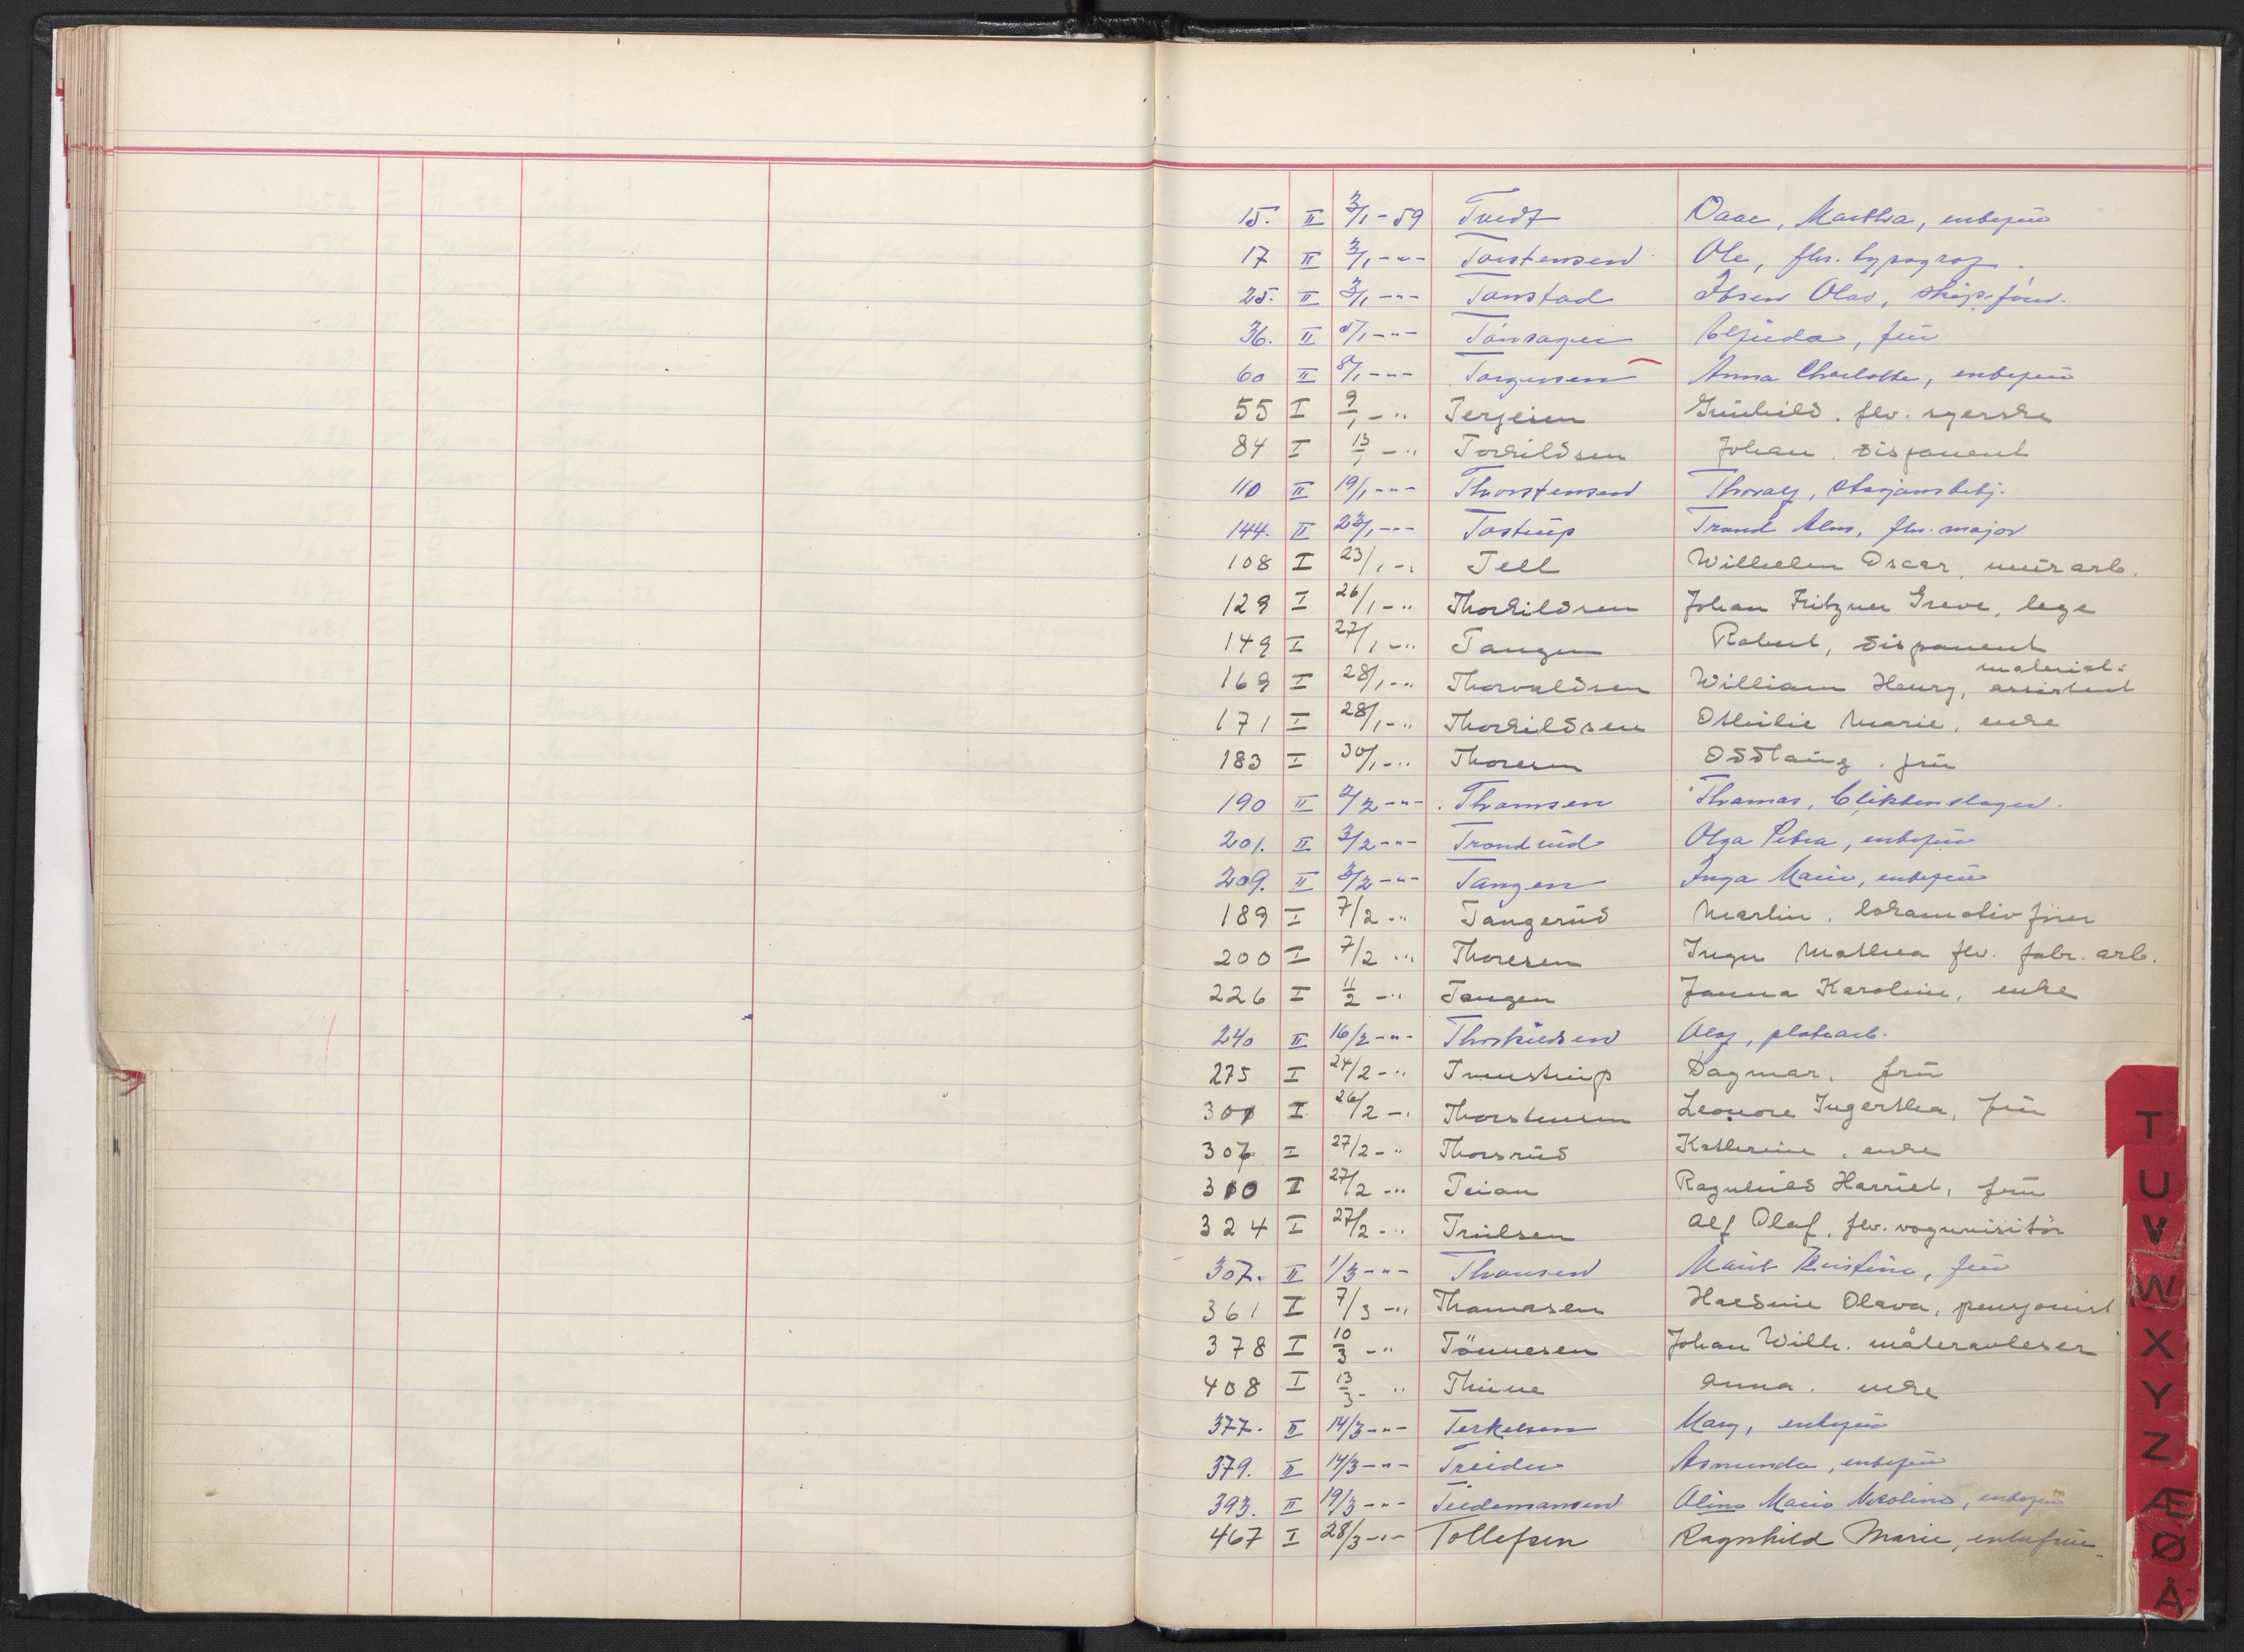 15. II 3/1-59 Tvedt Daae, Martha, enkefrú
17 II 3/1-"- Torstensen Ole, fhv. typograf.
25. II 3/1-"- Tanstad Ibsen Olav, skips.förer.
36. II 5/1-"- Tönsager frú
60 II 8/1-"- Torgersen Anna Charlotte, enkefrú
55 I 9/1-" Terjesen Gúnhild. fhv. syerske
84 I 13/1-" Torkildsen Johan. disponent
110 II 19/1-"- Thorstensen Thoralf, stasjonsbetj.
144. II 23/1-"- Tostrúp Trond Alm, fhv. major
108 I 23/1-" Tell Wilhelm Oscar, múrarb.
129 I 26/1-" Thorkildsen Johan Fritzner Greve, lege
149 I 27/1-" Tangen Robert, disponent
169 I 28/1-" Thorvaldsen William Henry, material-assistent
171 I 28/1-" Thorkildsen Othilie Marie, enke
183 I 30/1-" Thoresen Oddlaúg. frú
190 II 2/2-"- Thomsen Thomas, blikkenslager.
201. II 3/2-"- Trondrúd Olga Petra, enkefrú
209. II 3/2-"- Tangen Inga Marie, enkefrú
189 I 7/2-" Tangerúd Martin. lokomotivförer
200 I 7/2-" Thoresen Inger Mathea fhv. fabr. arb.
226 I 11/2-" Tangen Janna Karoline, enke
240 II 16/2-"- Thorkildsen Olaf, platearb.
275 I 24/2-" Tvenstrúp Dagmar. frú
301 I 26/2-" Thorstensen Leonore Ingerthea, frú
307 I 27/2-" Thorsrúd Katherine, enke
310 I 27/2-" Teian Ragnhild Harriet, frú
324 I 27/2-" Trúlsen Alf Olaf, fhv. vognvisitör
307. II 1/3-"- Thovsen Marit Kristine, frú
361 I 7/3-" Thomasen Haldine Olava, pensjonist
378 I 10/3-" Tönnesen Johan Wilh. måleravleser
408 I 13/3-" Thúne Anna. enke
377. II 14/3-"- Terkelsen Mary, enkefrú
379. II 14/3-"- Treider Asmunda, enkefrú
393. II 19/3-"- Tiedemansen Oline Marie Nikoline, enkefrú
467 I 28/3-"- Tollefsen Ragnhild Marie, enkefrúe
T
U
V
W
X
Y
Z
Æ
Ø
Å